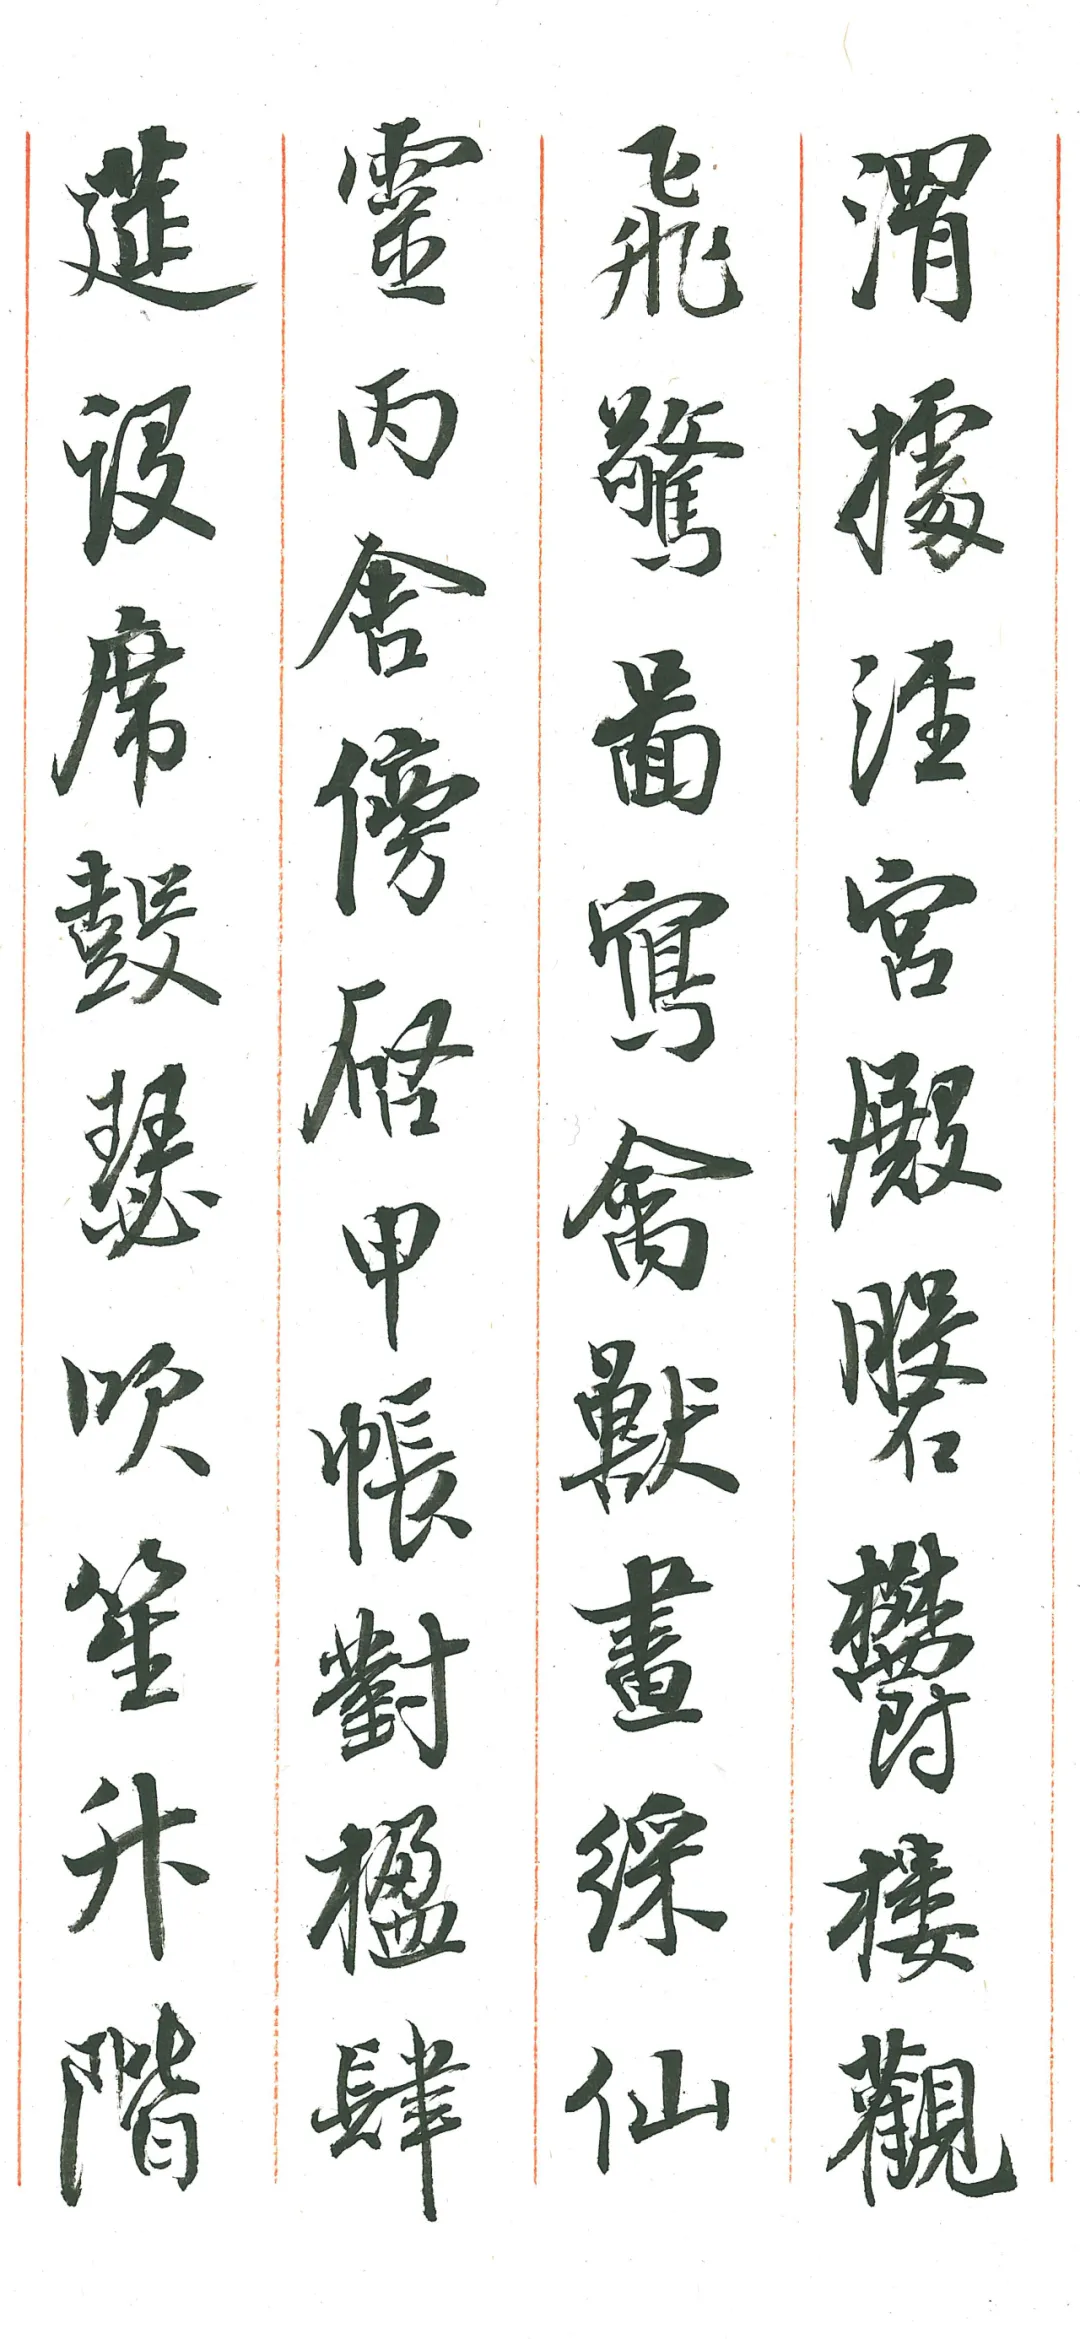 渭據涇宮殿磐欝樓觀
飛驚圖寫禽獸畫綵仙
靈丙舍傍啓甲帳對楹肆
筵設席鼓瑟吹笙升階